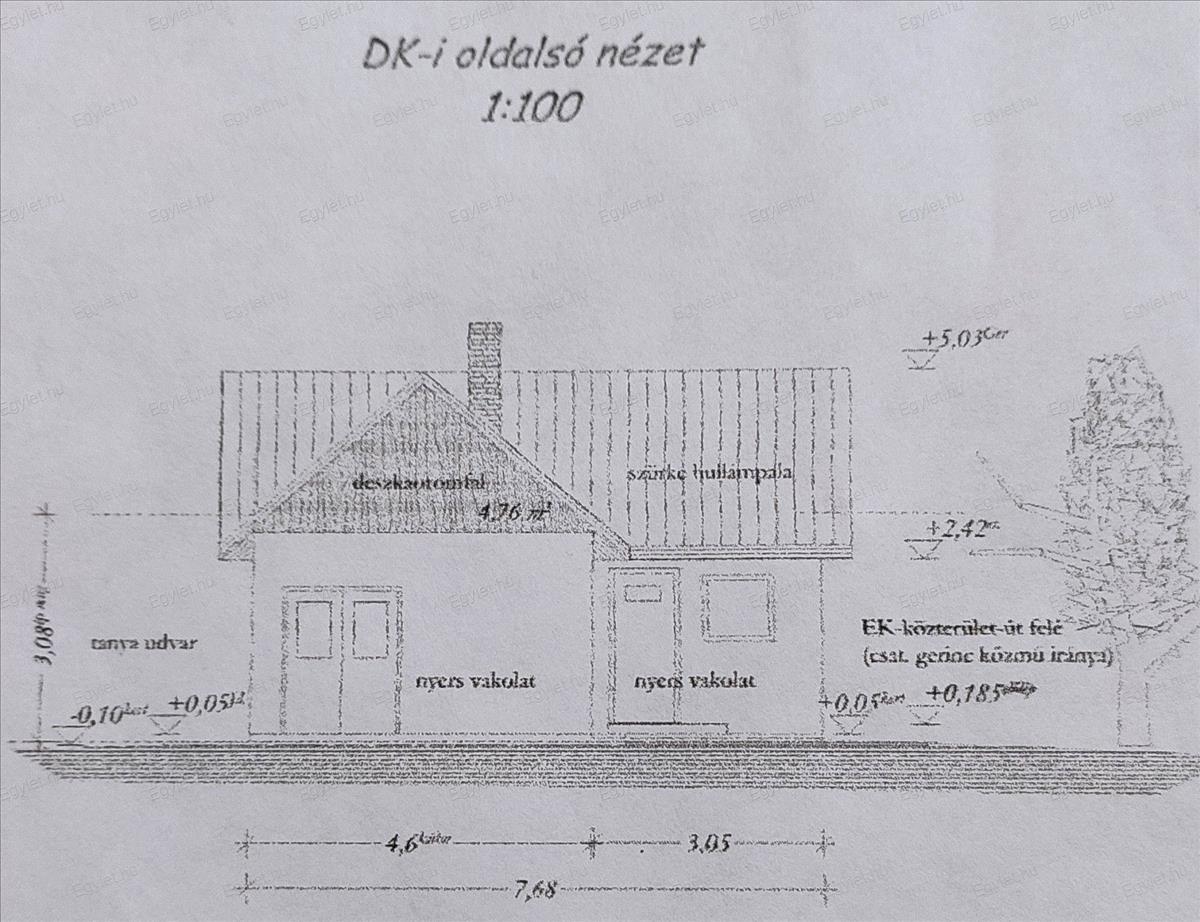 DK-i oldalsó nézet
1:100
+5,03
deszkaoromfal
4,76 m²
szürke hullámpala
+2,42
3,08
tanya udvar
nyers vakolat
nyers vakolat
EK-közterület-út felé
(csat. gerinc közmű iránya)
-0,10
+0,05
+0,05
+0,185
4,6
3,05
7,68
Egylet.hu